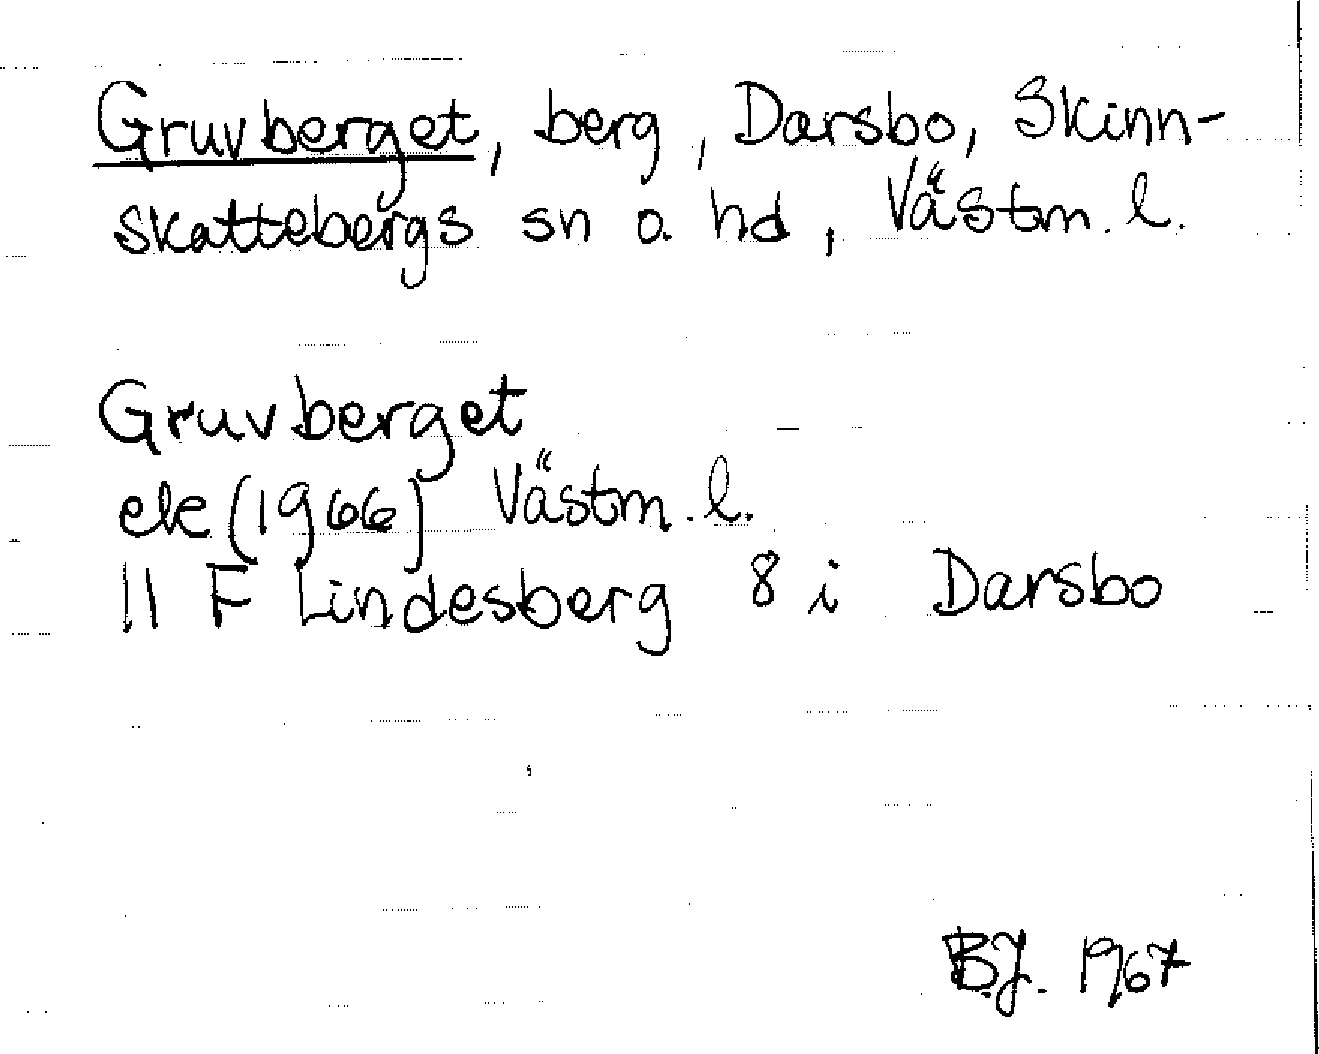 Gruvberget, berg, Darsbo, Skinn-
skattebergs sn o. hd, Västm. l.
Gruvberget
ek (1966) Västm. l.
11 F Lindesberg 8 i Darsbo
B.J. 1967